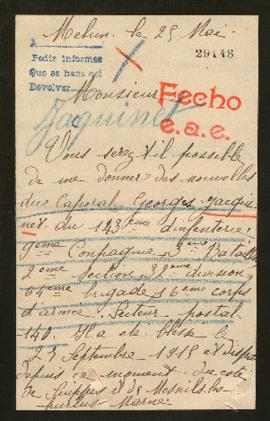 Melun. le 25 Mai.
29148
A
Pedir informes
Que se haga así
Devolver
Monsieur
Fecho
e.a.e.
Jaquinot
Vous serez t'il possible
de me donner des nouvelles
du Caporal Georges Jacqui
not du 143ème d'infanterie
9ème Compagnie Bataillon
2ème Section 32ème division
64ème brigade 16ème corps
d'armée. Secteur postal
140. Il a été blessé le
25 Septembre 1915 et disparu
depuis ce moment. Du coté
de Suippes et de Mesnils les
hurlus. Marne